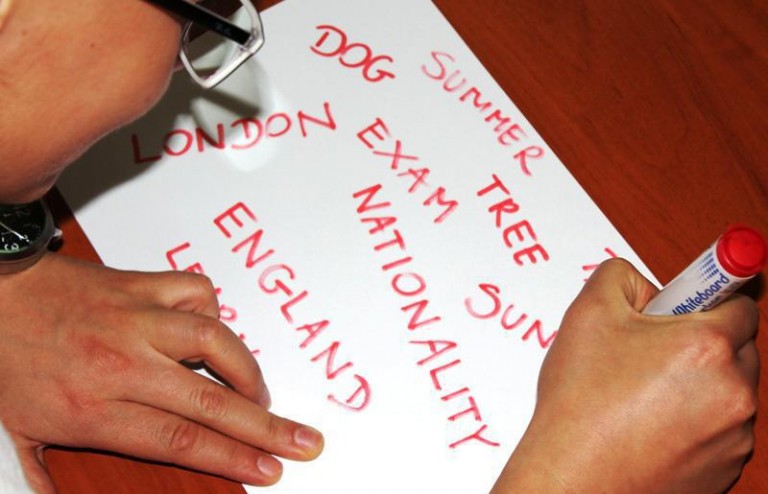 DOG
SUMMER
LONDON
EXAM
TREE
NATIONALITY
ENGLAND
SUN
Whiteboard